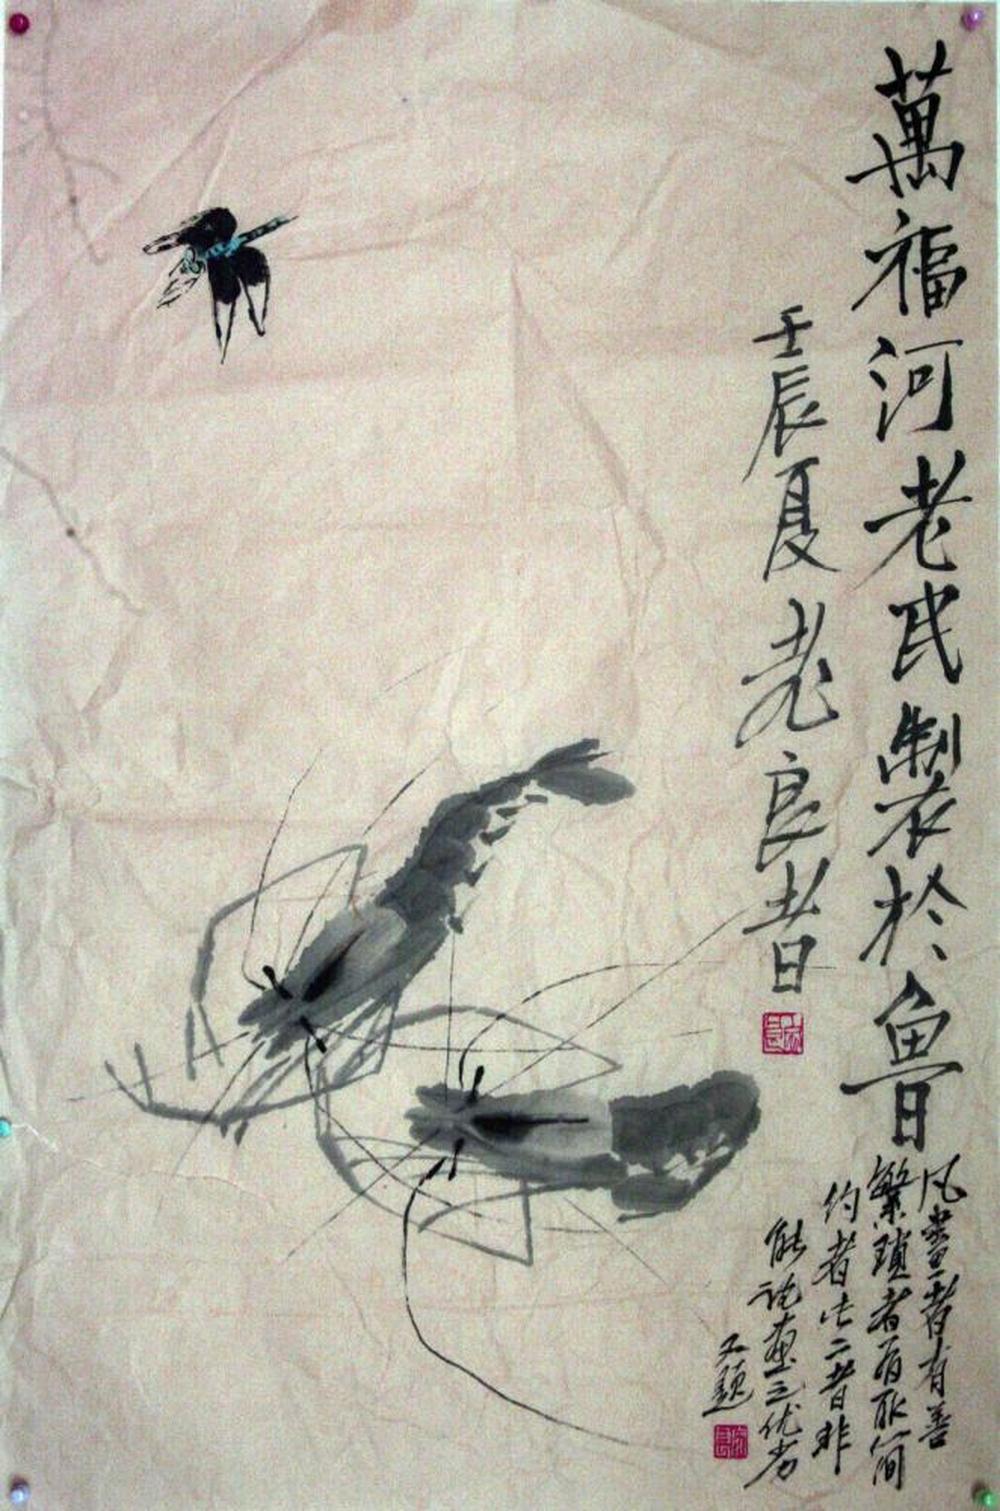 萬福河老民製於魯
壬辰夏老良昔
凡畫者有善
繁瑣者有取簡
約者此二者非
能论畫之优劣
又题